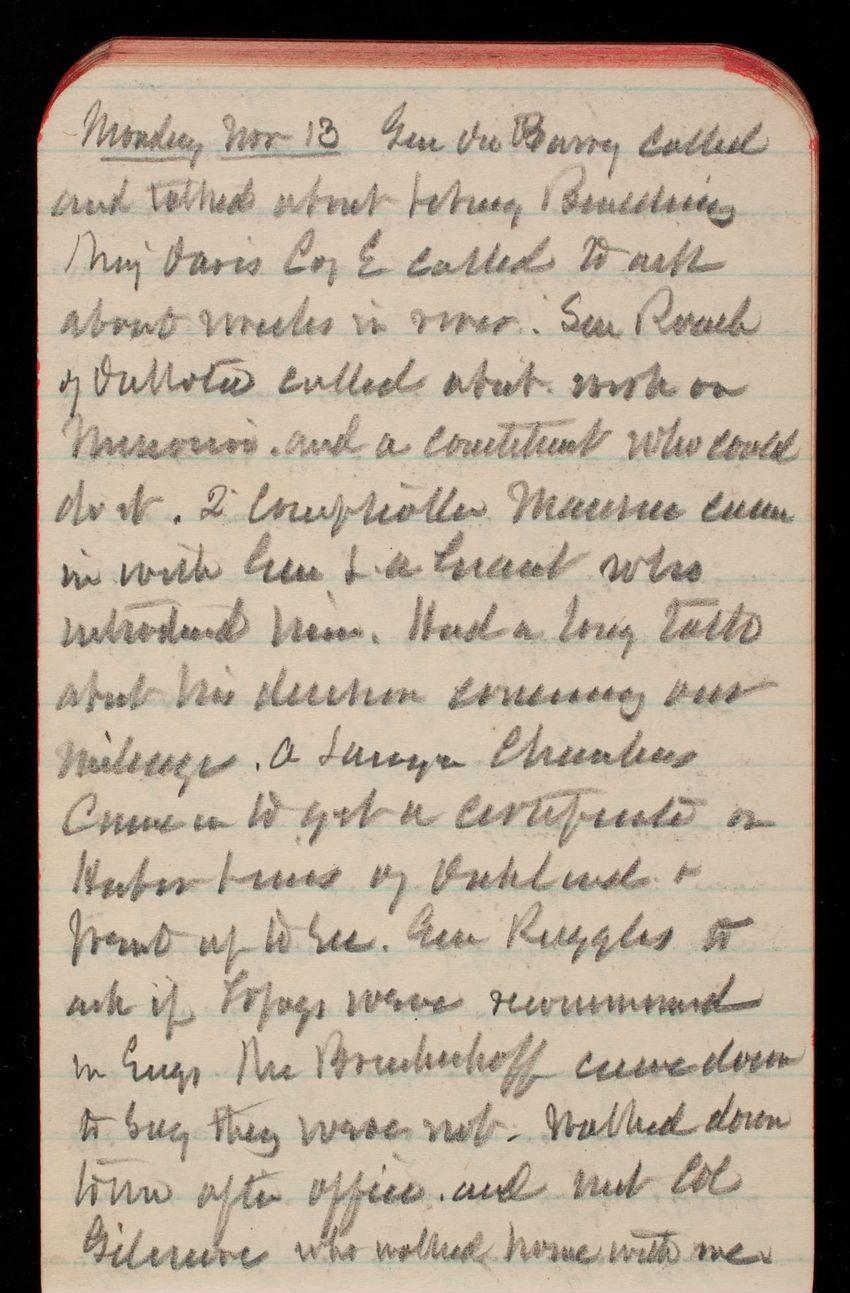 Monday Nov 13 Gen Du Barry called
and talked about Library Building
Maj Davis Cog E called to ask
about wrecks in river. Sen Roach
of Dakota called about work on
Missouri. and a constituent who could
do it. 2 Comptroller Mansur came
in with Gen L. a Grant who
introduced him. Had a long talk
about his decision concerning our
mileage. A Lawyer Chambers
Came in to get a certificate on
Harbor Lines of Oakland &
Went up to see. Gen Ruggles to
ask if Topogs were recommend
in Engs Mr Brinkerhoff came down
to say they were not. Walked down
town after office. and met Col
Gilmore who walked home with me.